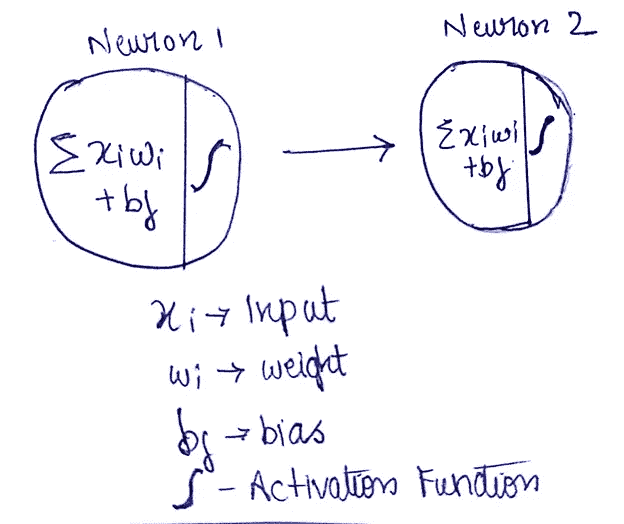 Neuron 1
Neuron 2
∑ xiwi
+ bj
∫
∑xiwi
+bj
∫
xi → Input
wi → weight
bj → bias
∫ - Activation Function